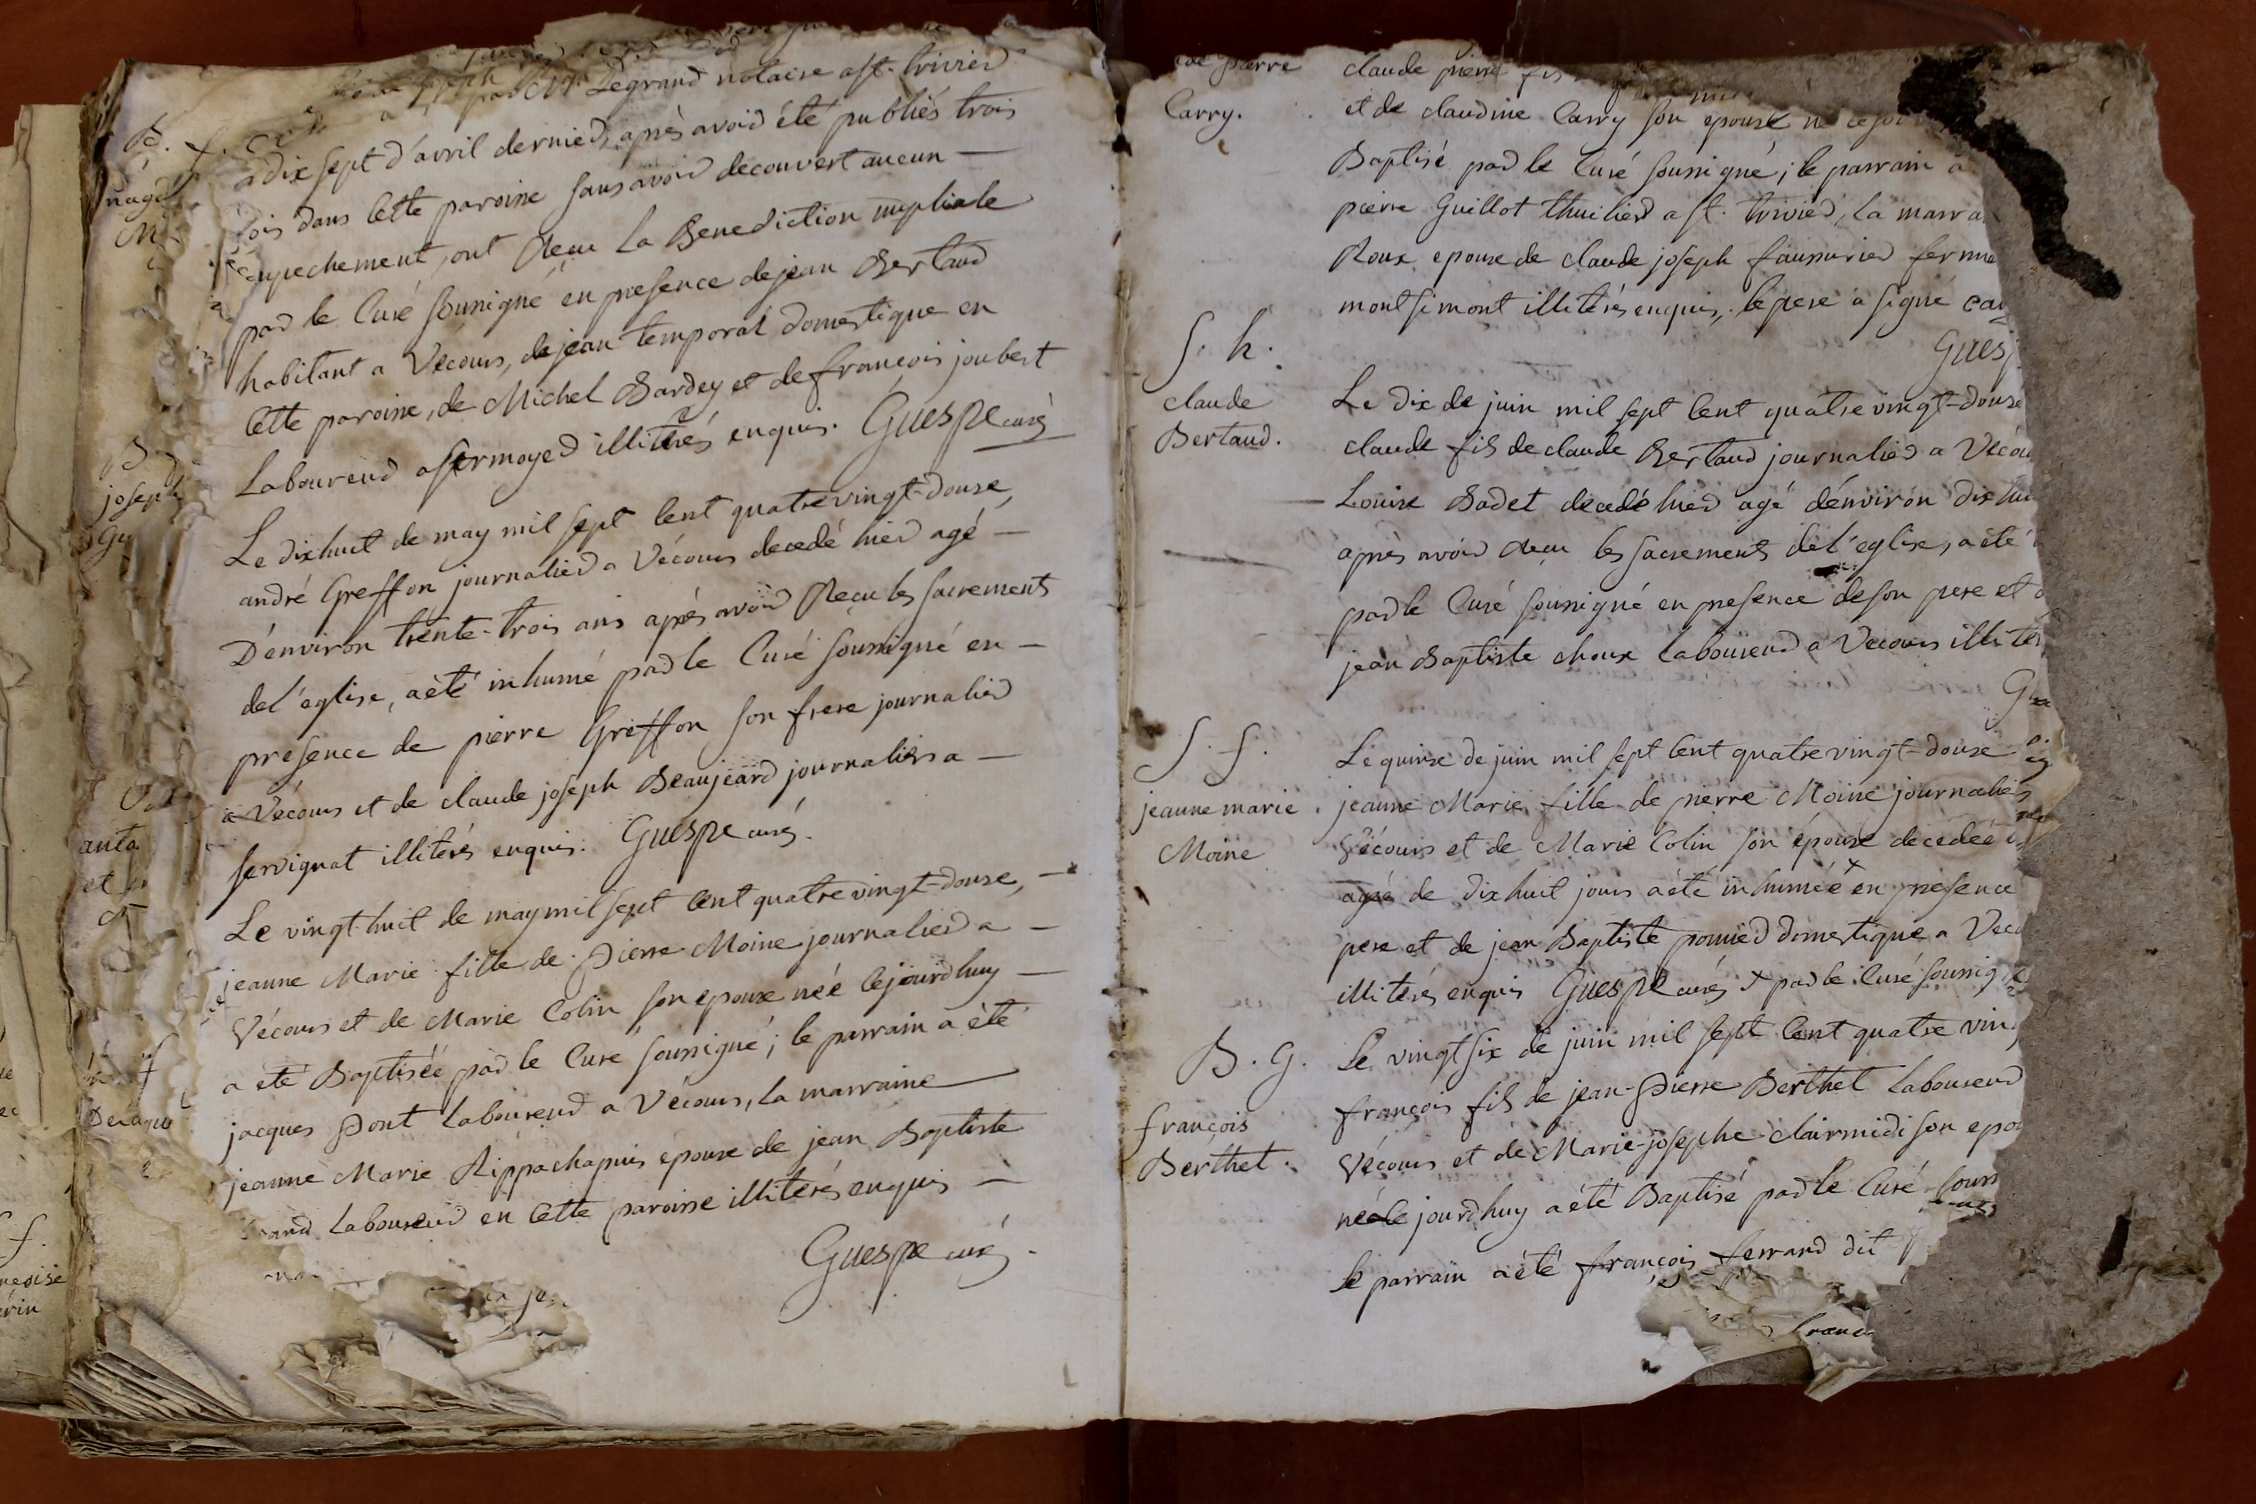 par Mr. Legrand notaire a st. trivier
a dix sept d'avril dernier, après avoir été publiés trois
fois dans cette paroisse sans avoir decouvert aucun
empechement, ont Reçu la Benediction nuptiale
par le Curé soussigné en presence de jean Bertaud
habitant a Vecours, de jean temporal domestique en
cette paroisse, de Michel Bardey et de françois joubert
Laboureur a sermoyer illitérés enquis. Guespe curé
Le dixhuit de may mil sept cent quatre vingt-douse,
andré Greffon journalier a Vécours decedé hier agé
D'énviron trente-trois ans après avoir Reçu les sacrements
de l'eglise, a été inhumé par le Curé soussigné en
presence de pierre Greffon son frere journalier
a Vécours et de claude joseph Beaujeard journalier a
servignat illitérés enquis. Guespe curé.
Le vingt-huit de may mil sept cent quatre vingt-douse,
jeanne Marie fille de Pierre Moine journalier a
Vécours et de Marie Colin son epouse née cejourdhuy
a été Baptiséé par le Curé soussigné; le parrain a été
jacques Pont Laboureur a Vécours, la marraine
jeanne Marie Rippachapuis épouse de jean Baptiste
Laboureur en cette paroisse illitérés enquis
Guespe curé.
B.
joseph
pierre
Carry.
claude pierre fils
et de claudine Carry son epouse né ce jour
Baptisé par le Curé soussigné; le parrain a
pierre Guillot thuilier a st. trivier, la marra
Roux epouse de claude joseph faussurier ferm
montsimont illitérés enquis, le pere a signé
Guesp
S. h.
claude
Bertaud.
Le dix de juin mil sept cent quatre vingt-douse
claude fils de claude Bertaud journalier a Vécou
Louise Badet decedé hier agé d'énviron dix hui
après avoir Reçu les sacrements de l'eglise, a été
par le Curé soussigné en presence de son pere et
jean Baptiste choux Laboureur a Vecours illiter
Gue
S. f.
jeanne marie
Moine
Le quinse de juin mil sept cent quatre vingt-douse
jeanne Marie fille de pierre Moine journalier
Vécours et de Marie Colin son épouse decedéé
agée de dix huit jours a été inhuméé + en presence
pere et de jean Baptiste domestique a Vec
illitérés enquis Guespe curé + par le Curé soussig
B. G.
françois
Berthet.
Le vingt six de juin mil sept cent quatre vin
françois fils de jean-Pierre Berthet Laboureur
Vécours et de Marie-josephe clairmidi son epou
né le jourdhuy a été Baptisé par le Curé souss
le parrain a été françois ferrand dit